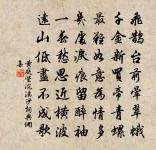 飛鵲台前暈翠蛾
千金新買帝青螺
最難如意為情多
幾處淚痕留醉袖
一春愁思近橫波
遠山低盡不成歌
黃庭堅浣溪沙詞